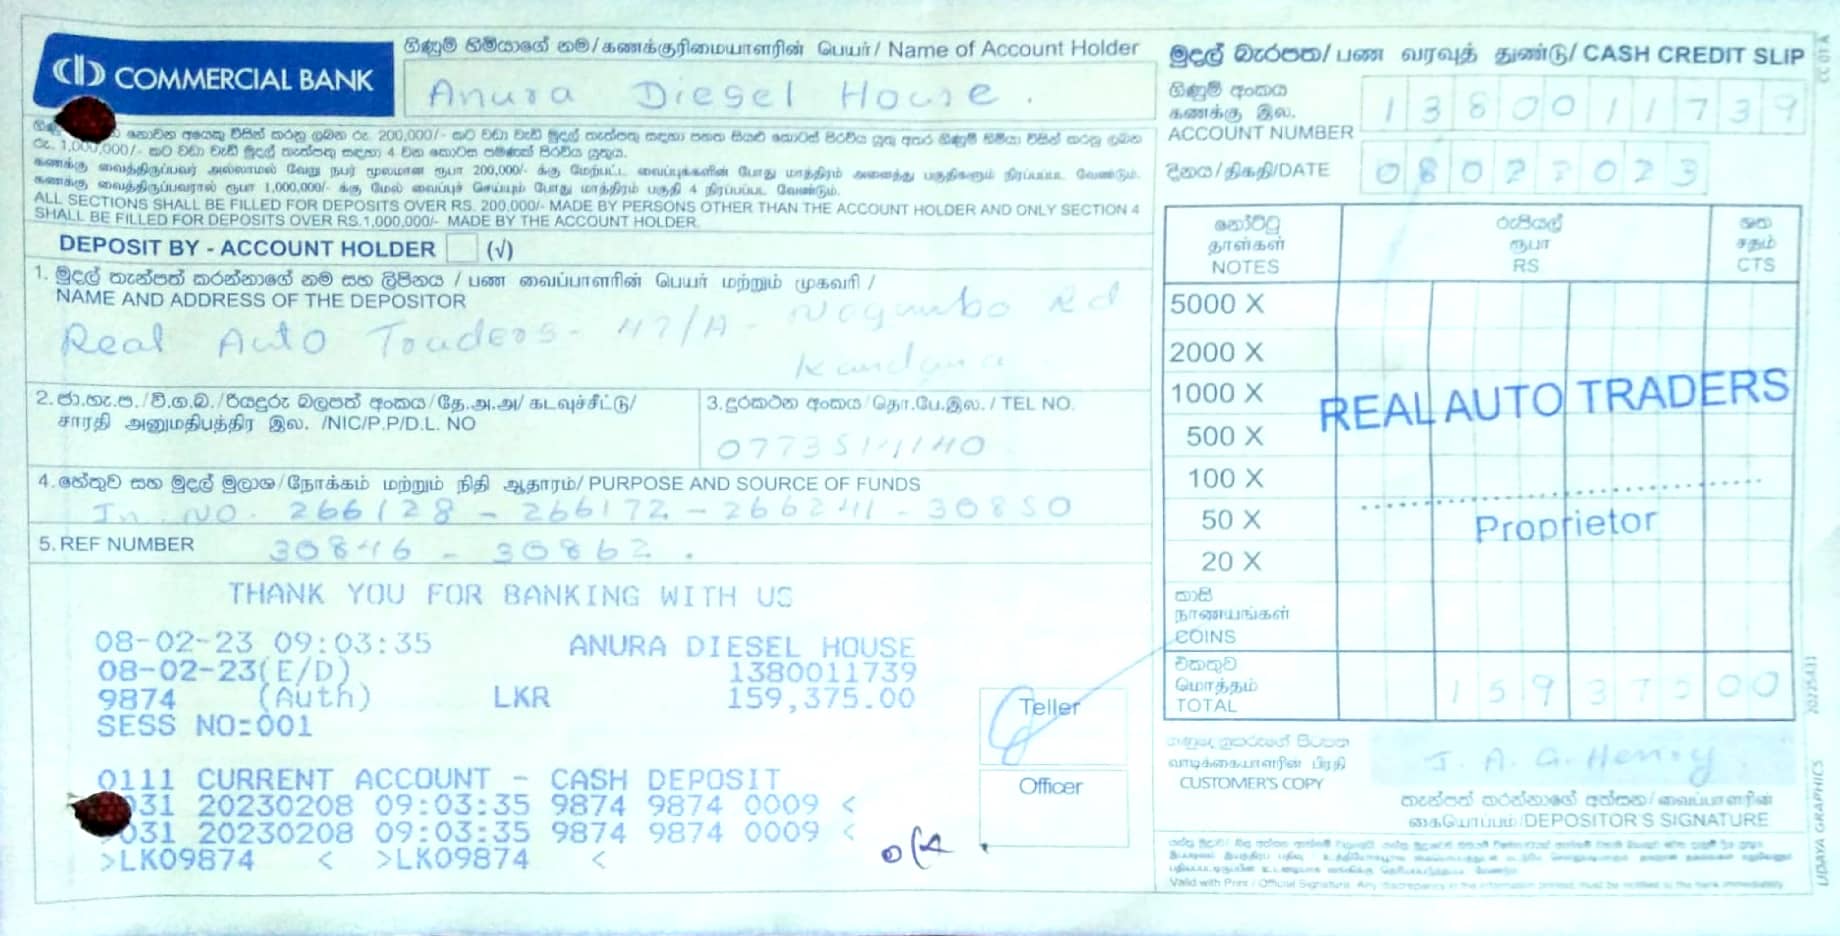 COMMERCIAL BANK
ගිණුම් හිමියාගේ නම/கணக்குரிமையாளரின் பெயர்/ Name of Account Holder
Anura Diesel House.
මුදල් බැරපත/பண வரவுத் துண்டு/ CASH CREDIT SLIP
CC 01 A
ගිණුම් අංකය
கணக்கு இல.
ACCOUNT NUMBER
1380011739
දිනය/திகதி/DATE
08022023
කණක්කු வைத்திருப்பவர் அல்லாமல் வேறு நபர் மூலமான ரூபா 200,000/- க்கு மேற்பட்ட வைப்புக்களின் போது மாத்திரம் அனைத்து பகுதிகளும் நிரப்பப்பட வேண்டும்.
கணக்கு வைத்திருப்பவரால் ரூபா 1,000,000/- க்கு மேல் வைப்புச் செய்யும் போது மாத்திரம் பகுதி 4 நிரப்பப்பட வேண்டும்.
ALL SECTIONS SHALL BE FILLED FOR DEPOSITS OVER RS. 200,000/- MADE BY PERSONS OTHER THAN THE ACCOUNT HOLDER AND ONLY SECTION 4
SHALL BE FILLED FOR DEPOSITS OVER RS.1,000,000/- MADE BY THE ACCOUNT HOLDER.
DEPOSIT BY - ACCOUNT HOLDER (√)
1. මුදල් තැන්පත් කරන්නාගේ නම සහ ලිපිනය / பண வைப்பாளரின் பெயர் மற்றும் முகவரி /
NAME AND ADDRESS OF THE DEPOSITOR
Real Auto Traders- 47/A- Negambo Rd
Kandana
2. ජා.හැ.ප./වි.ග.බ./රියදුරු බලපත් අංකය/தே.அ.அ/கடவுச்சீட்டு/
சாரதி அனுமதிபத்திர இல. /NIC/P.P/D.L. NO
3. දුරකථන අංකය/தொ.பே.இல. / TEL NO.
4. හේතුව සහ මුදල් මූලාශ්‍ර/நோக்கம் மற்றும் நிதி ஆதாரம்/ PURPOSE AND SOURCE OF FUNDS
In. NO. 266128 - 266172 - 266241 - 30850
5. REF NUMBER
30846 - 30862.
නෝට්ටු
தாள்கள்
NOTES
රුපියල්
ரூபா
RS
ශත
சதம்
CTS
5000 X
2000 X
1000 X
500 X
100 X
50 X
20 X
REAL AUTO TRADERS
Proprietor
කාසි
நாணயங்கள்
COINS
එකතුව
மொத்தம்
TOTAL
159375 00
THANK YOU FOR BANKING WITH US
08-02-23 09:03:35 ANURA DIESEL HOUSE
08-02-23(E/D) 1380011739
9874 (Auth) LKR 159,375.00
SESS NO=001
0111 CURRENT ACCOUNT - CASH DEPOSIT
031 20230208 09:03:35 9874 9874 0009 <
031 20230208 09:03:35 9874 9874 0009 <
>LK09874 < >LK09874 <
Teller
Officer
வாடிக்கையாளரின் பிரதி
CUSTOMER'S COPY
J. A. G. Henry
තැන්පත් කරන්නාගේ අත්සන/வைப்பாளரின்
கையொப்பம்/DEPOSITOR'S SIGNATURE
Valid with Print / Official Signature. Any discrepancy in the information printed must be notified to the bank immediately
UDAYA GRAPHICS